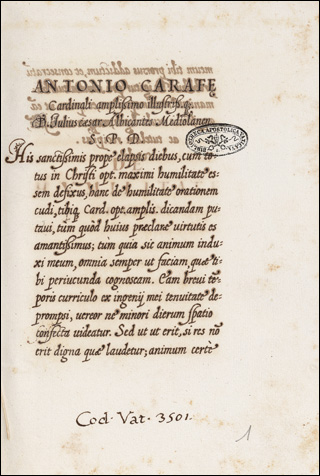 ANTONIO CARAFĘ
Cardinali amplissimo illustriss.q;
D. Julius cæsar Albicantes Mediolanen.
S. P. D.
His sanctissimis prope elapsis diebus, cum to-
tus in Christi opt. maximi humilitate es-
sem defixus, hanc de humilitate orationem
cudi, tibiq; Card. opt. amplis. dicandam pu-
taui, tum quòd huius præclare virtutis es
amantissimus; tum quia sic animum indu-
xi meum, omnia semper ut faciam, quæ ti-
bi periucunda cognoscam. Eam breui te-
poris curriculo ex ingenij mei tenuitate de-
prompsi, uereor ne minori dierum spatio
confecta uideatur. Sed ut ut erit, si res no
erit digna quæ laudetur; animum certè
BIBLIOTHECA APOSTOLICA VATICANA
Cod. Vat. 3501.
1